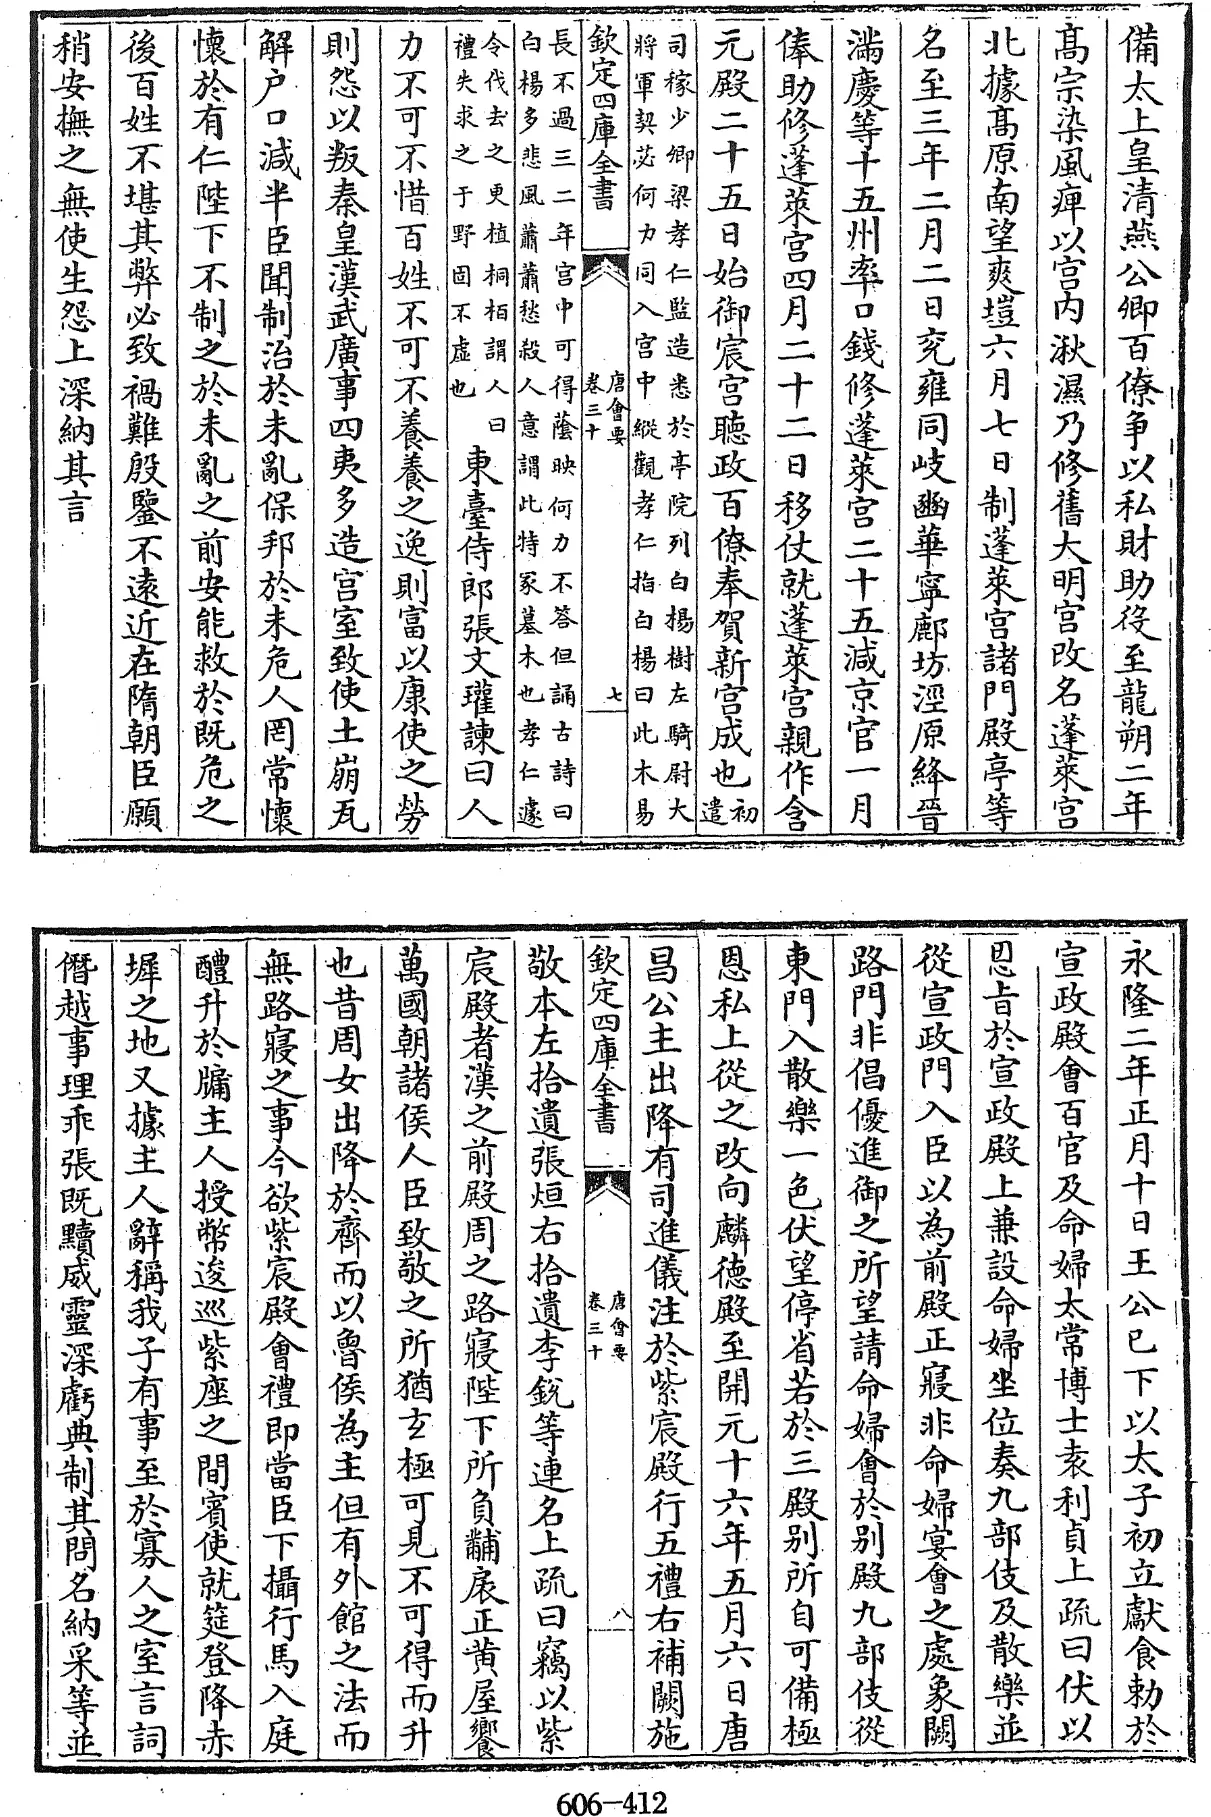 備太上皇清燕公卿百僚争以私財助役至龍朔二年
髙宗染風痺以宫内湫濕乃修舊大明宫改名蓬萊宫
北據髙原南望爽塏六月七日制蓬萊宫諸門殿亭等
名至三年二月二日兖雍同岐豳華寧鄜坊涇原絳晉
滿慶等十五州率口錢修蓬萊宫二十五減京官一月
俸助修蓬萊宫四月二十二日移仗就蓬萊宫親作含
元殿二十五日始御宸宫聽政百僚奉賀新宫成也初
遣
司稼少卿梁孝仁監造悉於亭院列白楊樹左驍尉大
將軍契苾何力同入宫中縱觀孝仁指白楊曰此木易
欽定四庫全書
唐會要
卷三十
七
長不過三二年宫中可得蔭映何力不答但誦古詩曰
白楊多悲風蕭蕭愁殺人意謂此特冢墓木也孝仁遽
令伐去之更植桐栢謂人曰
禮失求之于野固不虚也
東臺侍郎張文瓘諫曰人
力不可不惜百姓不可不養養之逸則富以康使之勞
則怨以叛秦皇漢武廣事四夷多造宫室致使土崩瓦
解户口減半臣聞制治於未亂保邦於未危人罔常懷
懷於有仁陛下不制之於未亂之前安能救於既危之
後百姓不堪其弊必致禍難殷鑒不遠近在隋朝臣願
稍安撫之無使生怨上深納其言
永隆二年正月十日王公已下以太子初立獻食勅於
宣政殿會百官及命婦太常博士袁利貞上疏曰伏以
恩旨於宣政殿上兼設命婦坐位奏九部伎及散樂並
從宣政門入臣以為前殿正寢非命婦宴會之處象闕
路門非倡優進御之所望請命婦會於别殿九部伎從
東門入散樂一色伏望停省若於三殿别所自可備極
恩私上從之改向麟德殿至開元十六年五月六日唐
昌公主出降有司進儀注於紫宸殿行五禮右補闕施
欽定四庫全書
唐會要
卷三十
八
敬本左拾遺張烜右拾遺李銳等連名上疏曰竊以紫
宸殿者漢之前殿周之路寢陛下所負黼扆正黄屋饗
萬國朝諸侯人臣致敬之所猶玄極可見不可得而升
也昔周女出降於齊而以魯侯為主但有外館之法而
無路寢之事今欲紫宸殿會禮即當臣下攝行馬入庭
醴升於牖主人授幣逡巡紫座之間賓使就筵登降赤
墀之地又據主人辭稱我子有事至於寡人之室言詞
僭越事理乖張既黷威靈深虧典制其問名納采等並
606-412